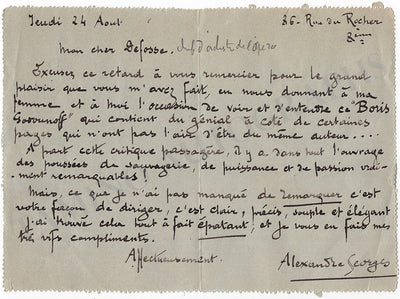 Jeudi 24 Aout
26. Rue du Rocher
8ème
Mon cher Defosse. chef d'orchestre de l'Opéra
Excusez ce retard à vous remercier pour le grand
plaisir que vous m'avez fait, en nous donnant à ma
femme et à moi l'occasion de voir et d'entendre ce "Boris
Godounoff" qui contient du génial à coté de certaines
pages qui n'ont pas l'air d'être du même auteur....
A part cette critique passagère, il y a dans tout l'ouvrage
des poussées de sauvagerie, de puissance et de passion vrai-
-ment remarquables!
Mais, ce que je n'ai pas manqué de remarquer c'est
votre façon de diriger, c'est clair, précis, souple et élégant
j'ai trouvé cela tout à fait épatant; et je vous en fais mes
très vifs compliments.
Affectueusement.
Alexandre Georges